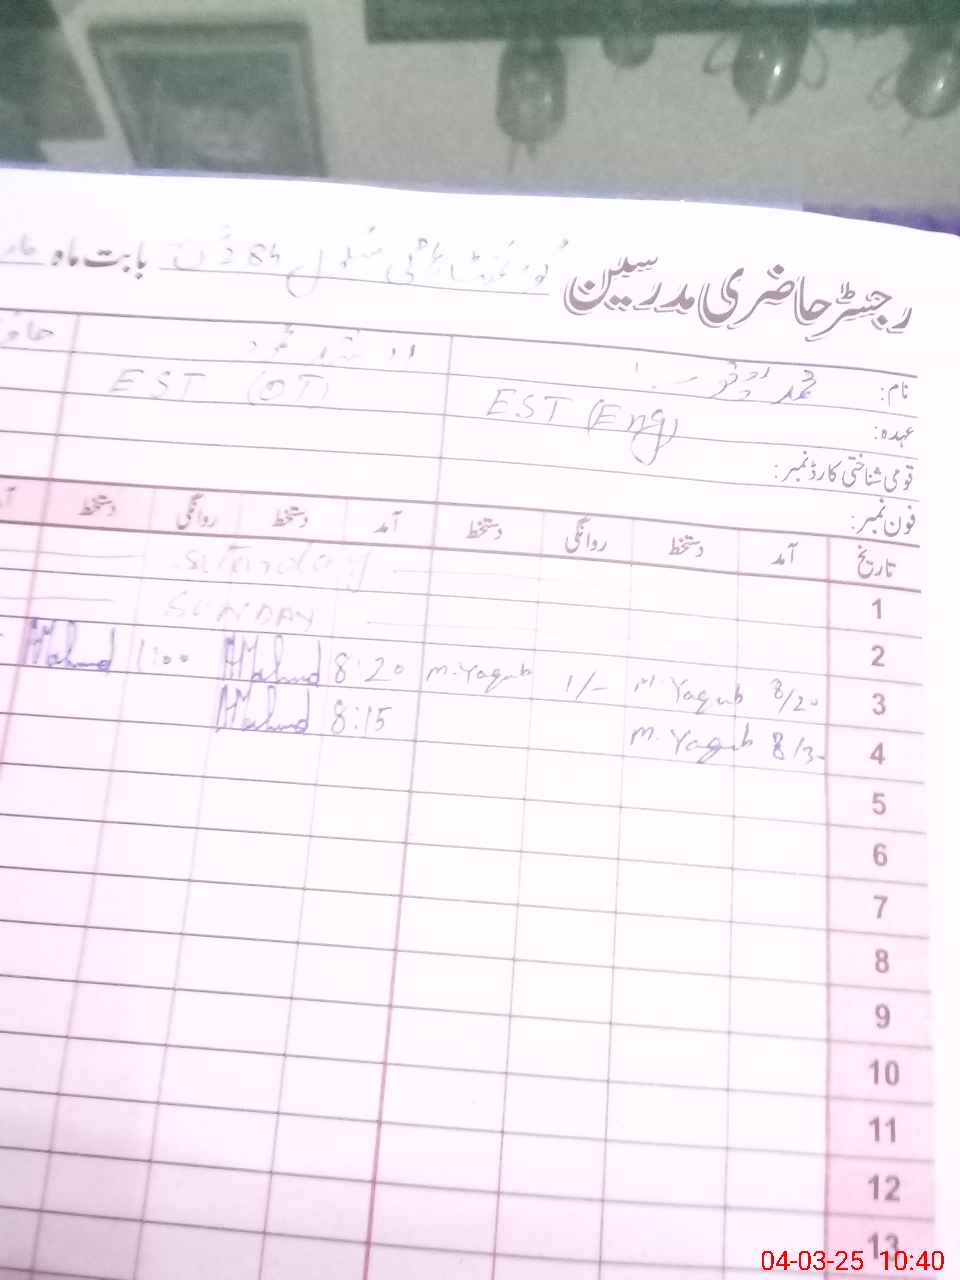 رجسٹر حاضری مدرسین گورنمنٹ ہائی سکول 284 بابت ماہ
نام: محمد یعقوب
عہدہ: EST (Eng) EST (OT)
قومی شناختی کارڈ نمبر:
فون نمبر:
تاریخ آمد دستخط روانگی دستخط آمد دستخط روانگی دستخط
1
2 SUNDAY
3 8/20 M. Yaqub 1/- M. Yaqub 8:20 Mahmud 1:00 Mahmud
4 8/3- M. Yaqub 8:15 Mahmud
5
6
7
8
9
10
11
12
13
04-03-25 10:40